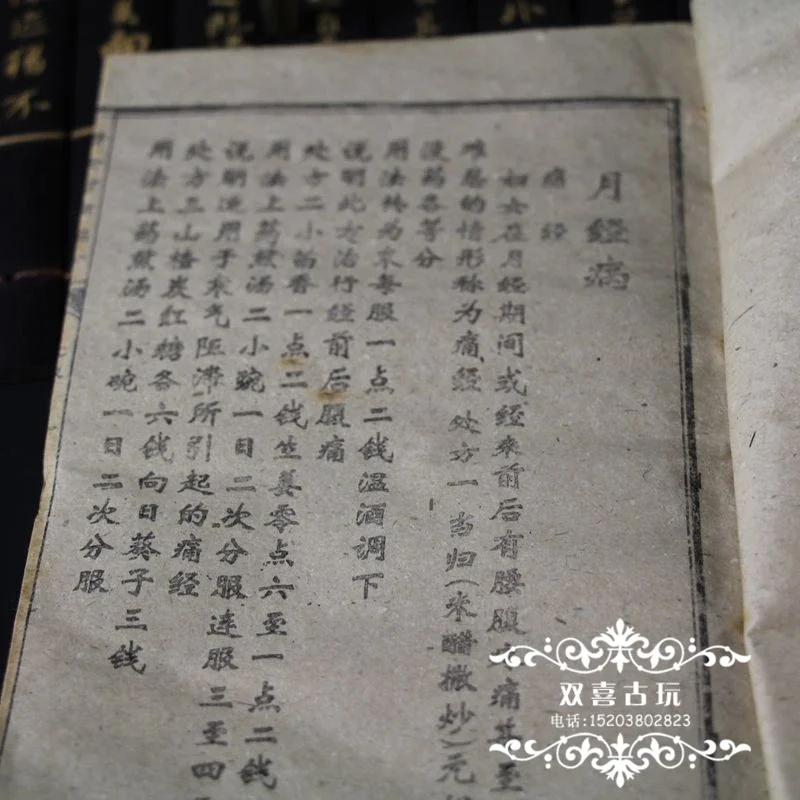 月经病
痛经
妇女在月经期间或经来前后有腰腹痛甚至
难忍的情形称为痛经 处方一 当归(米醋撒炒)元
没药各等分
用法终为末每服一点二钱温酒调下
说明此方治行经前后腹痛
处方二小茴香一点二钱生姜零点六至一点二钱
用法上药煎汤二小碗一日二次分服连服三至四
说明适用于气阻滞所引起的痛经
处方三山楂炭红糖各六钱向日葵子三钱
用法上药煎汤二小碗一日二次分服
双喜古玩
电话:15203802823